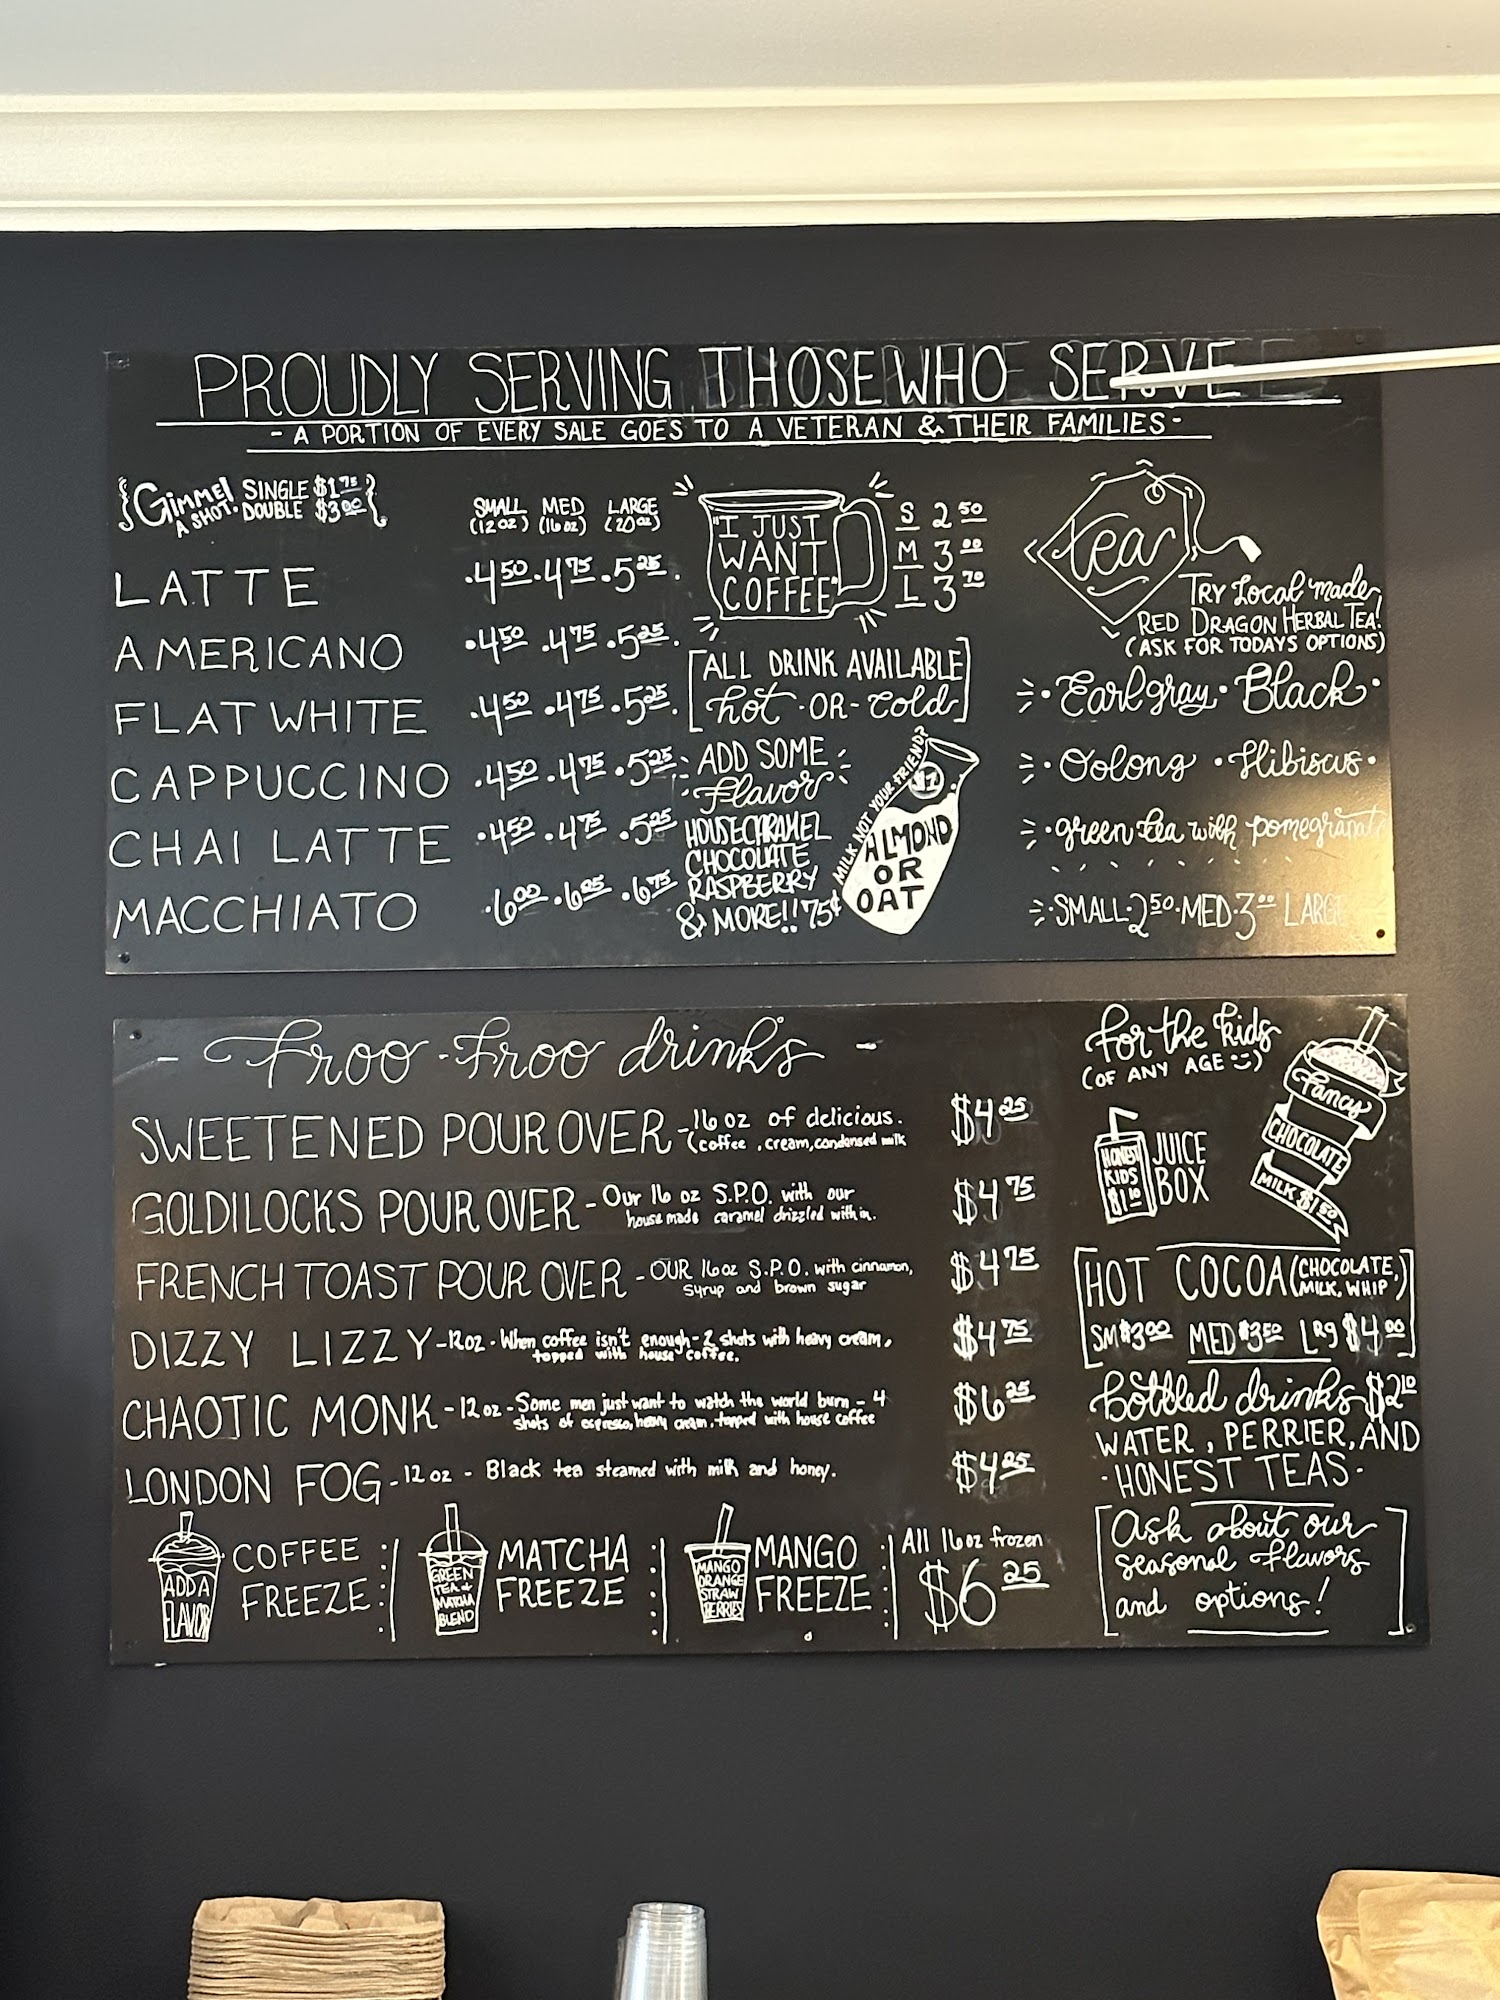 PROUDLY SERVING THOSE WHO SERVE
- A PORTION OF EVERY SALE GOES TO A VETERAN & THEIR FAMILIES -
{Gimme! A SHOT. SINGLE $1.75
DOUBLE $3.00}
SMALL (12 oz) MED (16 oz) LARGE (20 oz)
LATTE .4.50 .4.75 .5.25.
AMERICANO .4.50 .4.75 .5.25.
FLAT WHITE .4.50 .4.75 .5.25.
CAPPUCCINO .4.50 .4.75 .5.25.
CHAI LATTE .4.50 .4.75 .5.25
MACCHIATO .6.00 .6.25 .6.75
"I JUST
WANT
COFFEE"
S 2.50
M 3.00
L 3.70
[ALL DRINK AVAILABLE
hot -OR- cold]
ADD SOME
Flavor
HOUSE CARAMEL
CHOCOLATE,
RASPBERRY
& MORE!! 75¢
MILK NOT YOUR FRIEND?
$1
ALMOND
OR
OAT
tea
TRY Local made
RED DRAGON HERBAL TEA!
(ASK FOR TODAYS OPTIONS)
· Earl gray · Black ·
· Oolong · Hibiscus ·
· green tea with pomegranate
· SMALL · 2.50 · MED · 3.00 LARGE
- Froo-Froo drinks -
SWEETENED POUR OVER - 16 oz of delicious. $4.25
(coffee, cream, condensed milk
GOLDILOCKS POUR OVER - Our 16 oz S.P.O. with our $4.75
house made caramel drizzled within.
FRENCH TOAST POUR OVER - OUR 16 oz S.P.O. with cinnamon, $4.75
syrup and brown sugar
DIZZY LIZZY - 12 oz - When coffee isn't enough - 2 shots with heavy cream, $4.75
topped with house coffee.
CHAOTIC MONK - 12 oz - Some men just want to watch the world burn - 4 $6.25
shots of espresso, heavy cream, topped with house coffee
LONDON FOG - 12 oz - Black tea steamed with milk and honey. $4.25
ADD A
FLAVOR
COFFEE
FREEZE
GREEN
TEA &
MATCHA
BLEND
MATCHA
FREEZE
MANGO
ORANGE
STRAW
BERRIES
MANGO
FREEZE
All 16 oz frozen
$6.25
for the kids
(OF ANY AGE :))
HONEST
KIDS
$1.10
JUICE
BOX
Fancy
CHOCOLATE
MILK $1.50
[HOT COCOA (CHOCOLATE, MILK, WHIP)
SM $3.00 MED $3.50 LRG $4.00]
bottled drinks $2.10
WATER, PERRIER, AND
· HONEST TEAS ·
[Ask about our
seasonal flavors
and options!]